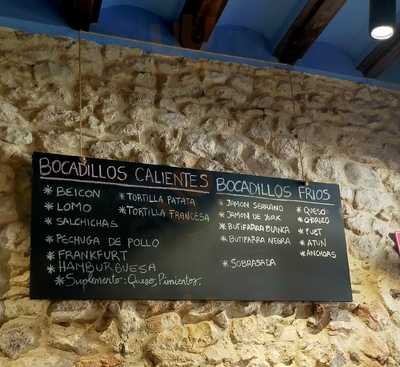 BOCADILLOS CALIENTES
* BEICON
* LOMO
* SALCHICHAS
* PECHUGA DE POLLO
* FRANKFURT
* HAMBURGUESA
* Suplemento: Queso, Pimientos.
* TORTILLA PATATA
* TORTILLA FRANCESA
BOCADILLOS FRIOS
* JAMON SERRANO
* JAMON DE YORK
* BUTIFARRA BLANCA
* BUTIFARRA NEGRA
* SOBRASADA
* QUESO
* CHORIZO
* FUET
* ATUN
* ANCHOAS